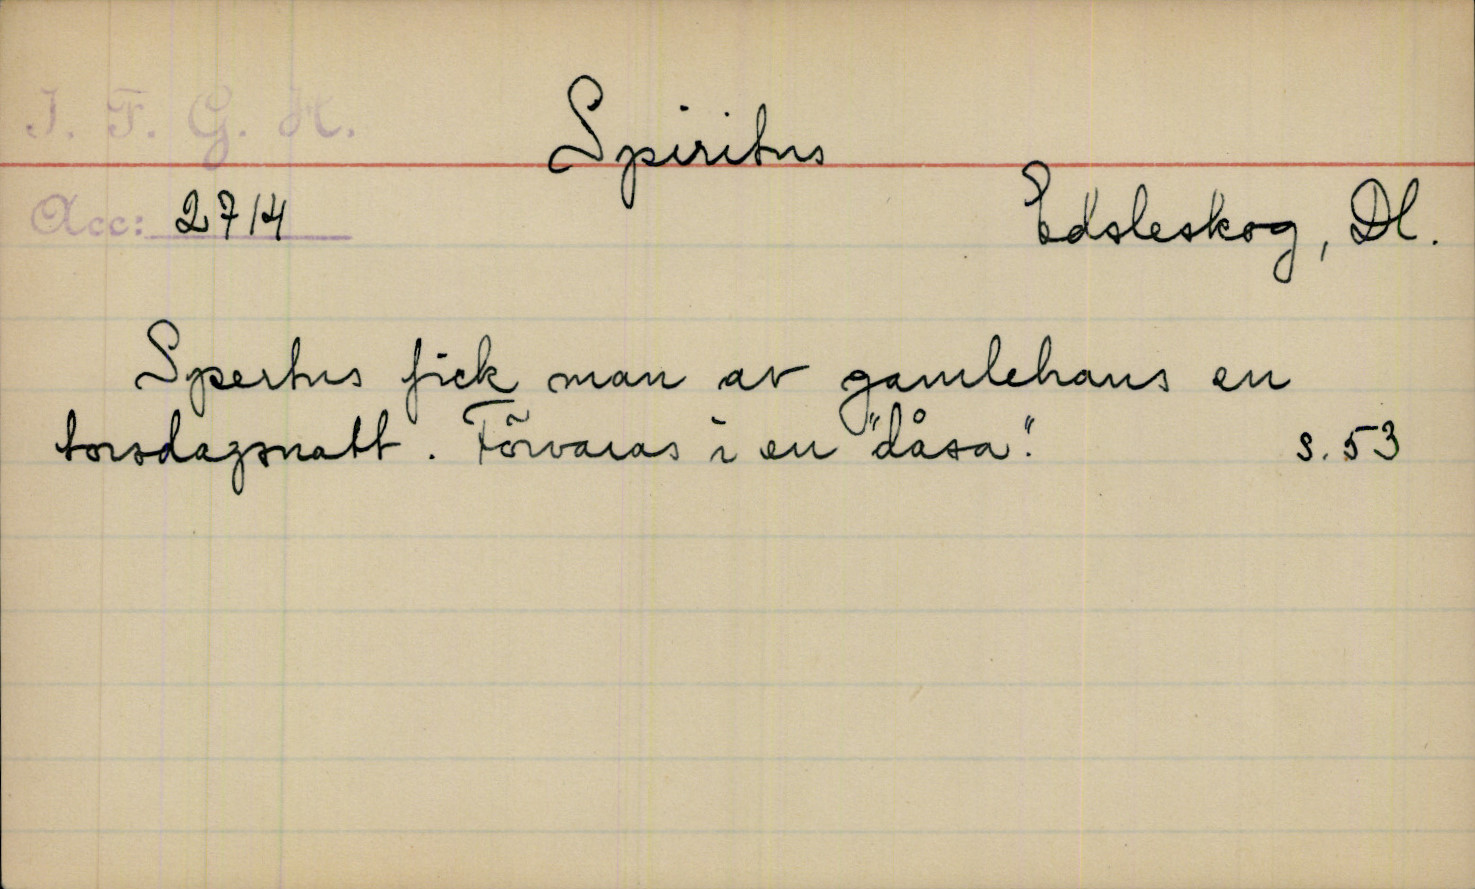 I. F. G. H.
Spiritus
Acc: 2714
Edsleskog, Dl.
Spertus fick man av gamlehans en
torsdagsnatt. Förvaras i en "dåsa". s. 53